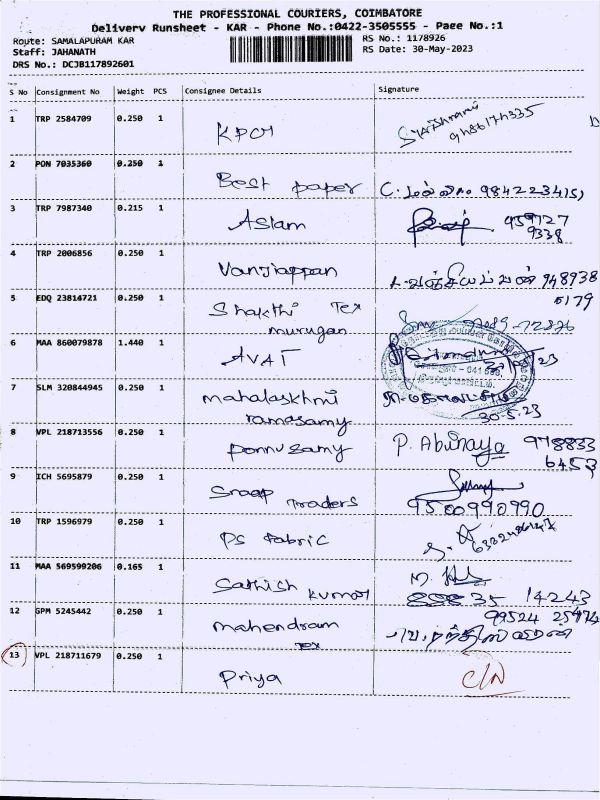 THE PROFESSIONAL COURIERS, COIMBATORE
Delivery Runsheet - KAR - Phone No.:0422-3505555 - Page No.:1
Route: SAMALAPURAM KAR
Staff: JAHANATH
DRS No.: DCJB117892601
RS No.: 1178926
RS Date: 30-May-2023
S No Consignment No Weight PCS Consignee Details Signature
1 TRP 2584709 0.250 1 KPCM
2 PON 7035360 0.250 1 Best paper C. 9842234151
3 TRP 7987340 0.215 1 Aslam 959727
9338
4 TRP 2006856 0.250 1 Vanjiappan 948938
6179
5 EDQ 23814721 0.250 1 Shakthi Tex
murugan
6 MAA 860079878 1.440 1 AVAT
7 SLM 320844945 0.250 1 mahalaskhmi
ramasamy
30-5-23
8 VPL 218713556 0.250 1 ponnusamy P. Abinaya 978833
6453
9 ICH 5695879 0.250 1 Snaap Traders
9500990990
10 TRP 1596979 0.250 1 PS fabric
11 MAA 569599206 0.165 1 Sathish kumar M.
35 14243
12 GPM 5245442 0.250 1 mahendram
Tex
99524 25974
13 VPL 218711679 0.250 1 Priya C/N